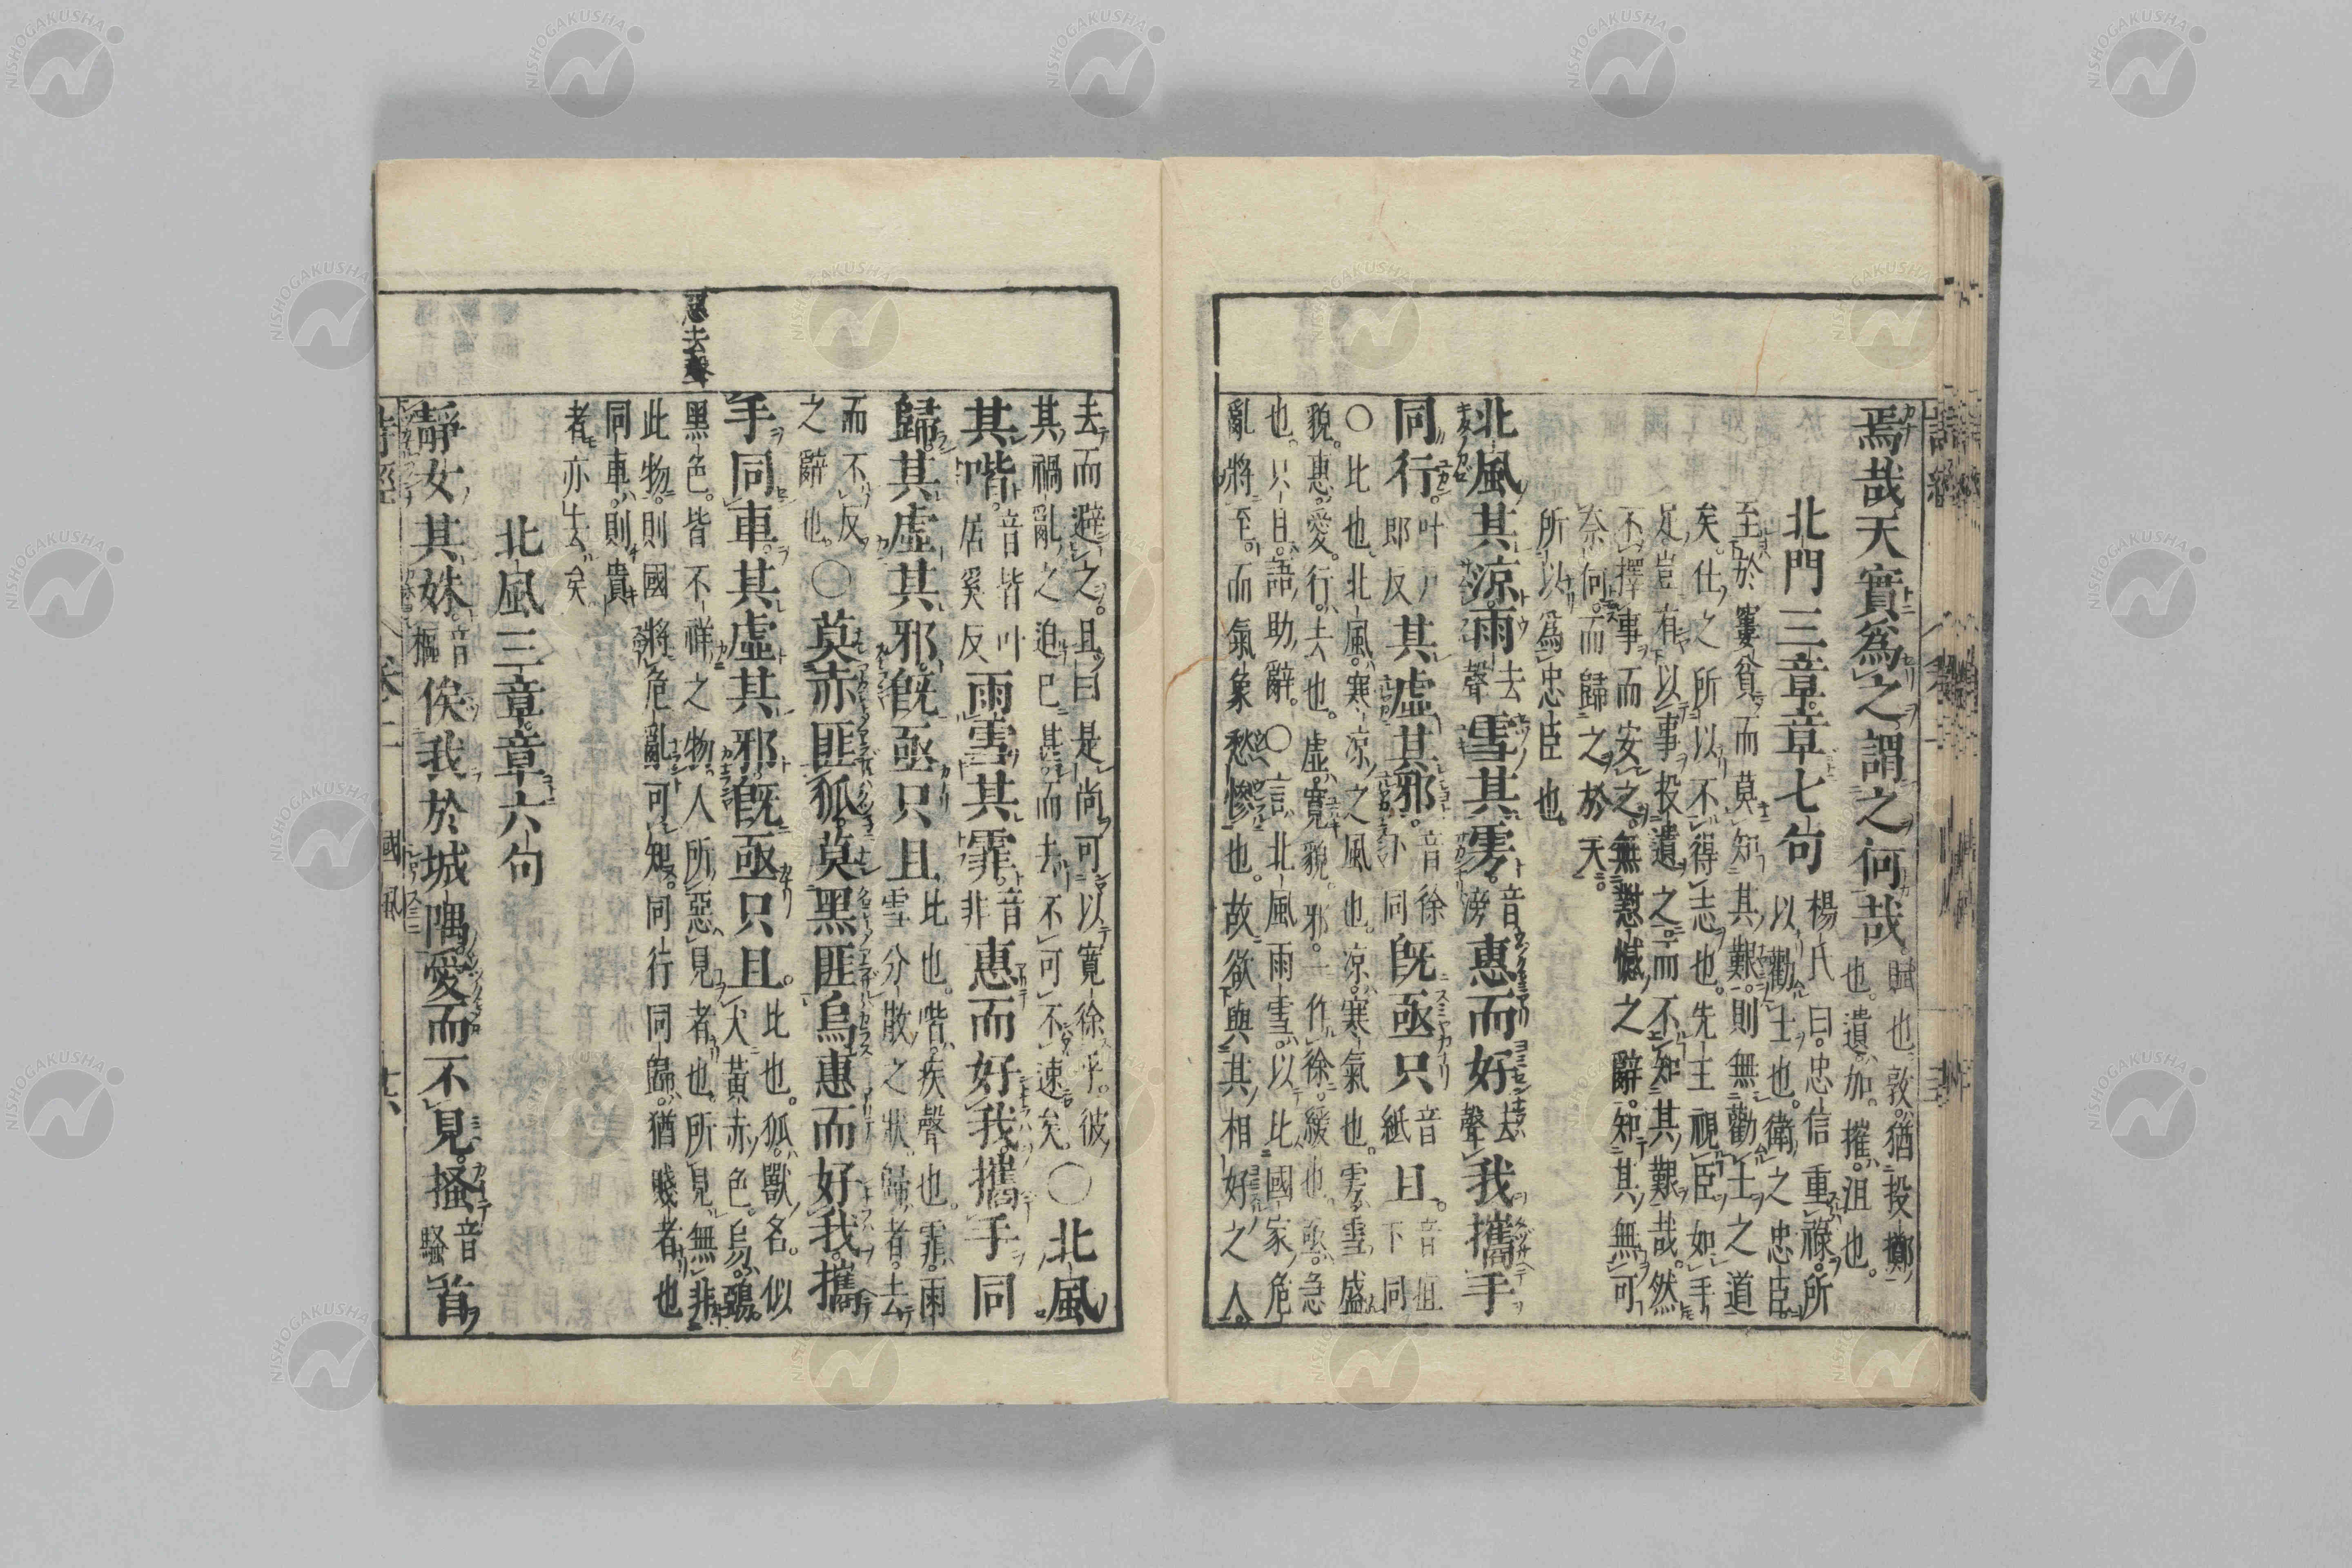 焉哉天實爲之謂之何哉。賦也。敦。猶投擲
也。遺。加。摧。沮也。
北門三章章七句 楊氏曰。忠信重祿。所
以勸士也。衛之忠臣。
至於窶貧而莫知其艱。則無勸士之道
矣。仕之所以不得志也。先王視臣如手
足。豈有以事投遺之。而不知其艱哉。然
不擇事而安之。無懟憾之辭。知其無可
奈何。而歸之於天。
所以爲忠臣也。
北風其涼。雨去聲雪其雱。音滂惠而好去聲我攜手
同行。叶戶郎反其虛其邪。音徐下同旣亟只音紙且。音疽下同
○比也。北風。寒涼之風也。涼。寒氣也。雱。雪盛
貌。惠。愛。行。去也。虛。寬貌。邪。一作徐。緩也。亟。急
也。只且。語助辭。○言北風雨雪。以比國家危
亂將至。而氣象愁慘也。故欲與其相好之人。
去而避之。且曰是尚可以寬徐乎。彼
其禍亂之迫已甚。而去不可不速矣。○北風
其喈。音皆叶居奚反雨雪其霏。音非惠而好我。攜手同
歸。其虛其邪。旣亟只且比也。喈。疾聲也。霏。雨
雪分散之狀。歸者。去
而不反
之辭也。○莫赤匪狐。莫黑匪烏惠而好我。攜
手同車。其虛其邪。旣亟只且。比也。狐。獸名。似
犬黃赤色。烏。鴉。
黑色。皆不祥之物。人所惡見者也。所見無非
此物。則國將危亂可知。同行同歸。猶賤者也
同車。則貴
者亦去矣
北風三章章六句
靜女其姝。音樞俟我於城隅。愛而不見。搔音騷首
惡去聲
詩經
卷二
國風